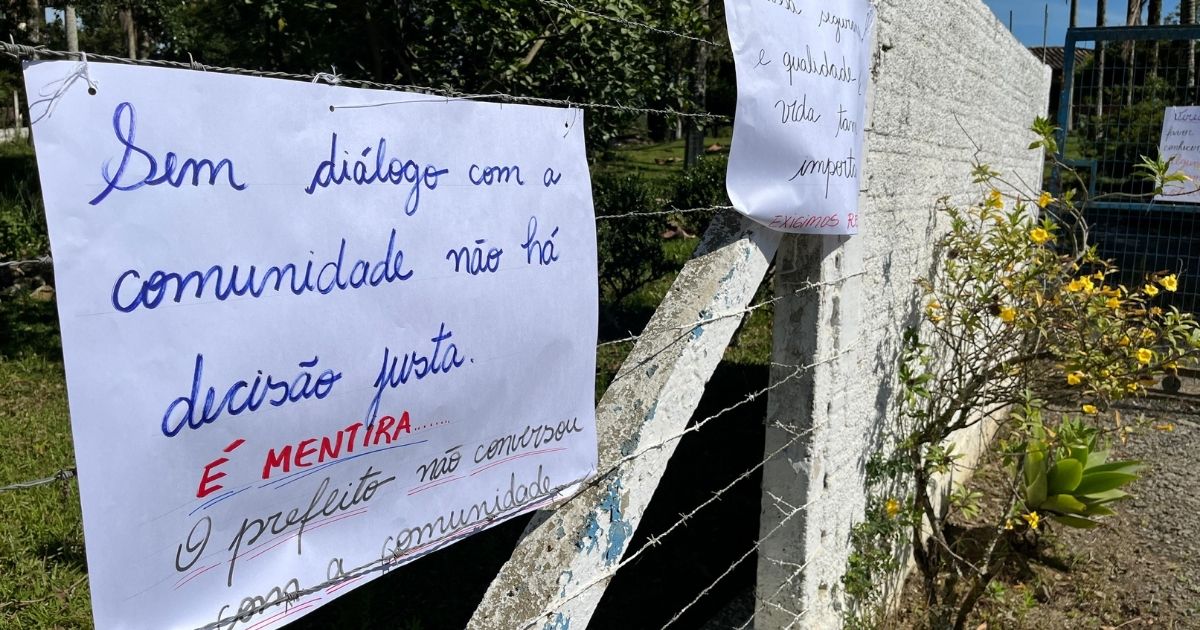 Sem diálogo com a
comunidade não há
decisão justa.
É MENTIRA.......
O prefeito não conversou
com a comunidade
e qualidade
vida
EXIGIMOS